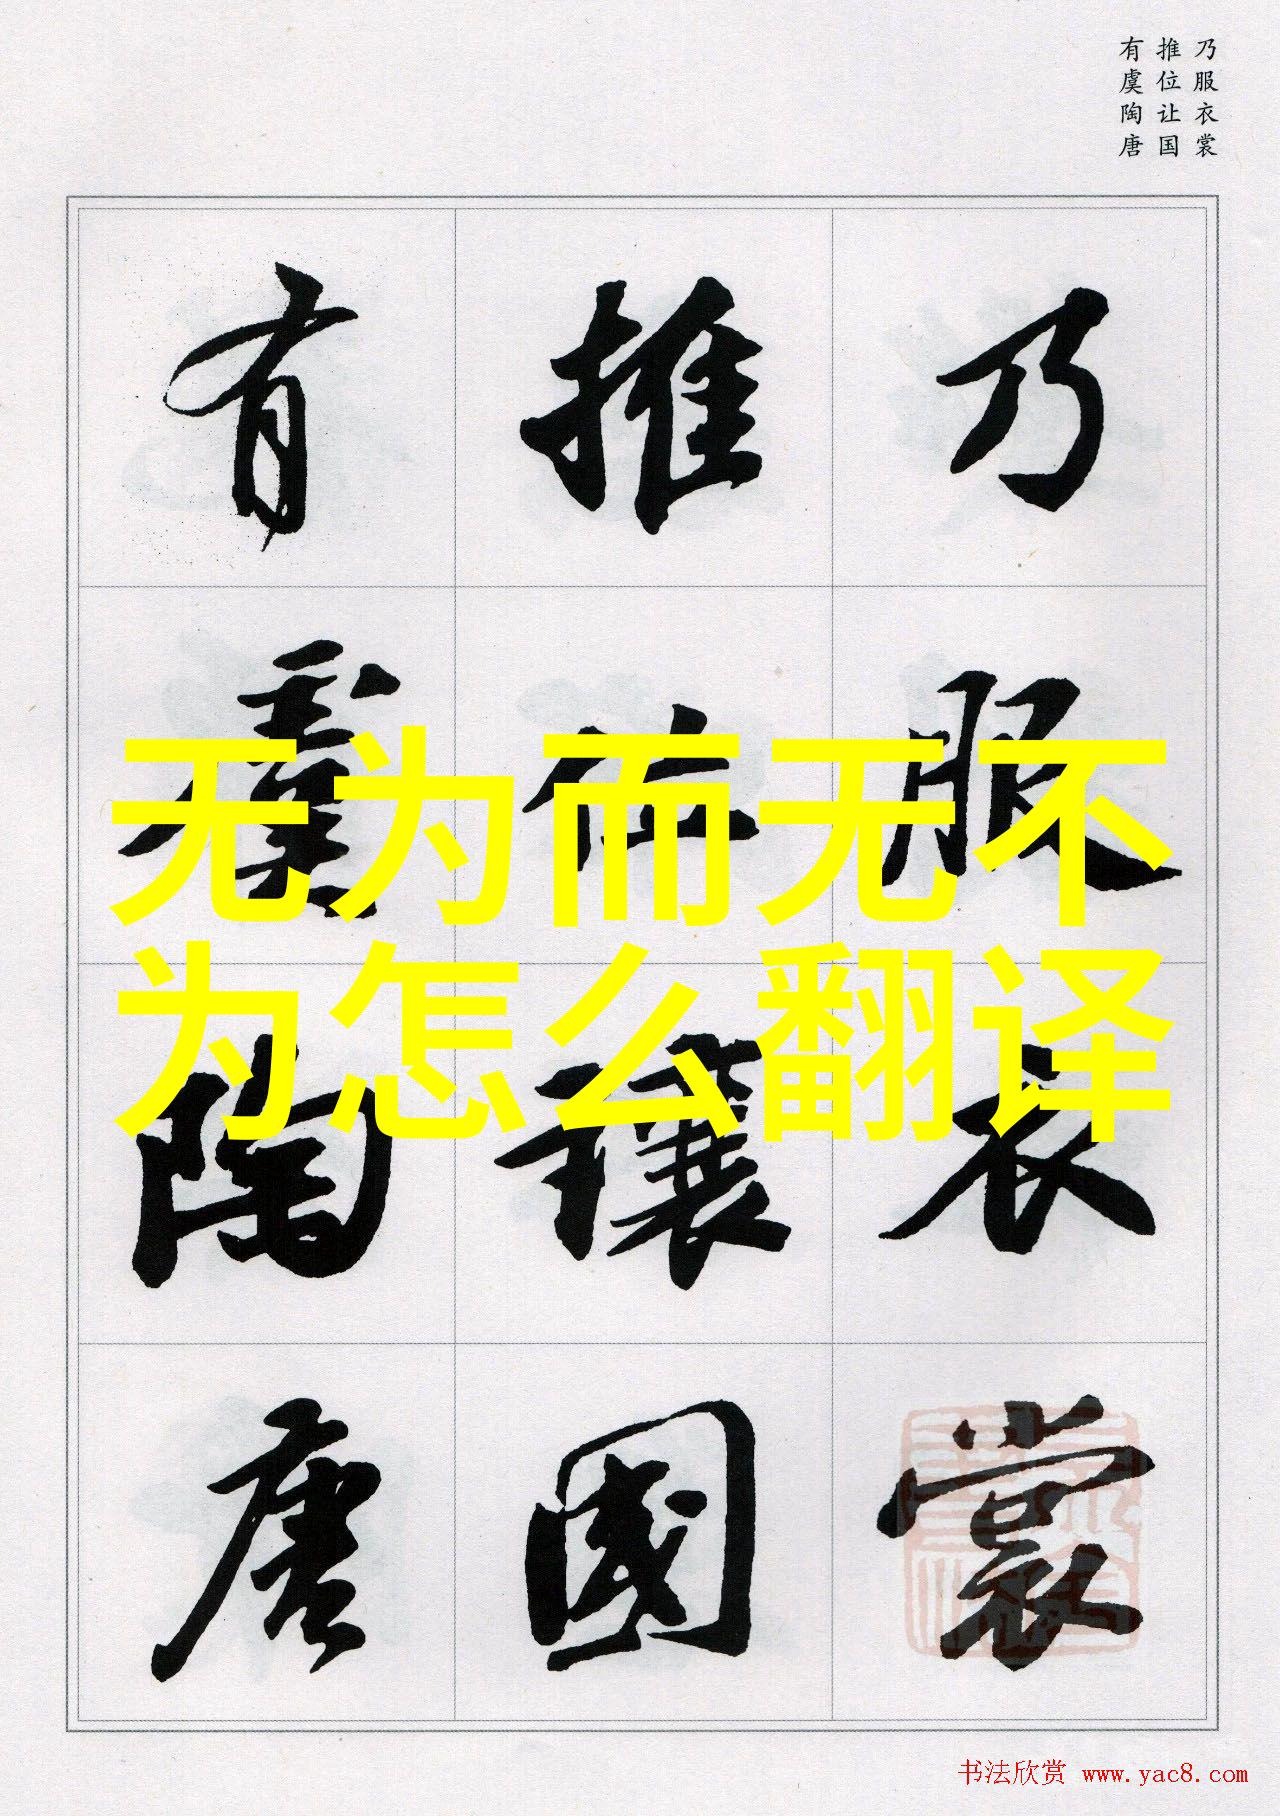 乃服衣裳
推位让国
有虞陶唐
乃服衣裳
推位讓國
有虞陶唐
无为而无不
为怎么翻译
书法欣赏 www.yac8.com